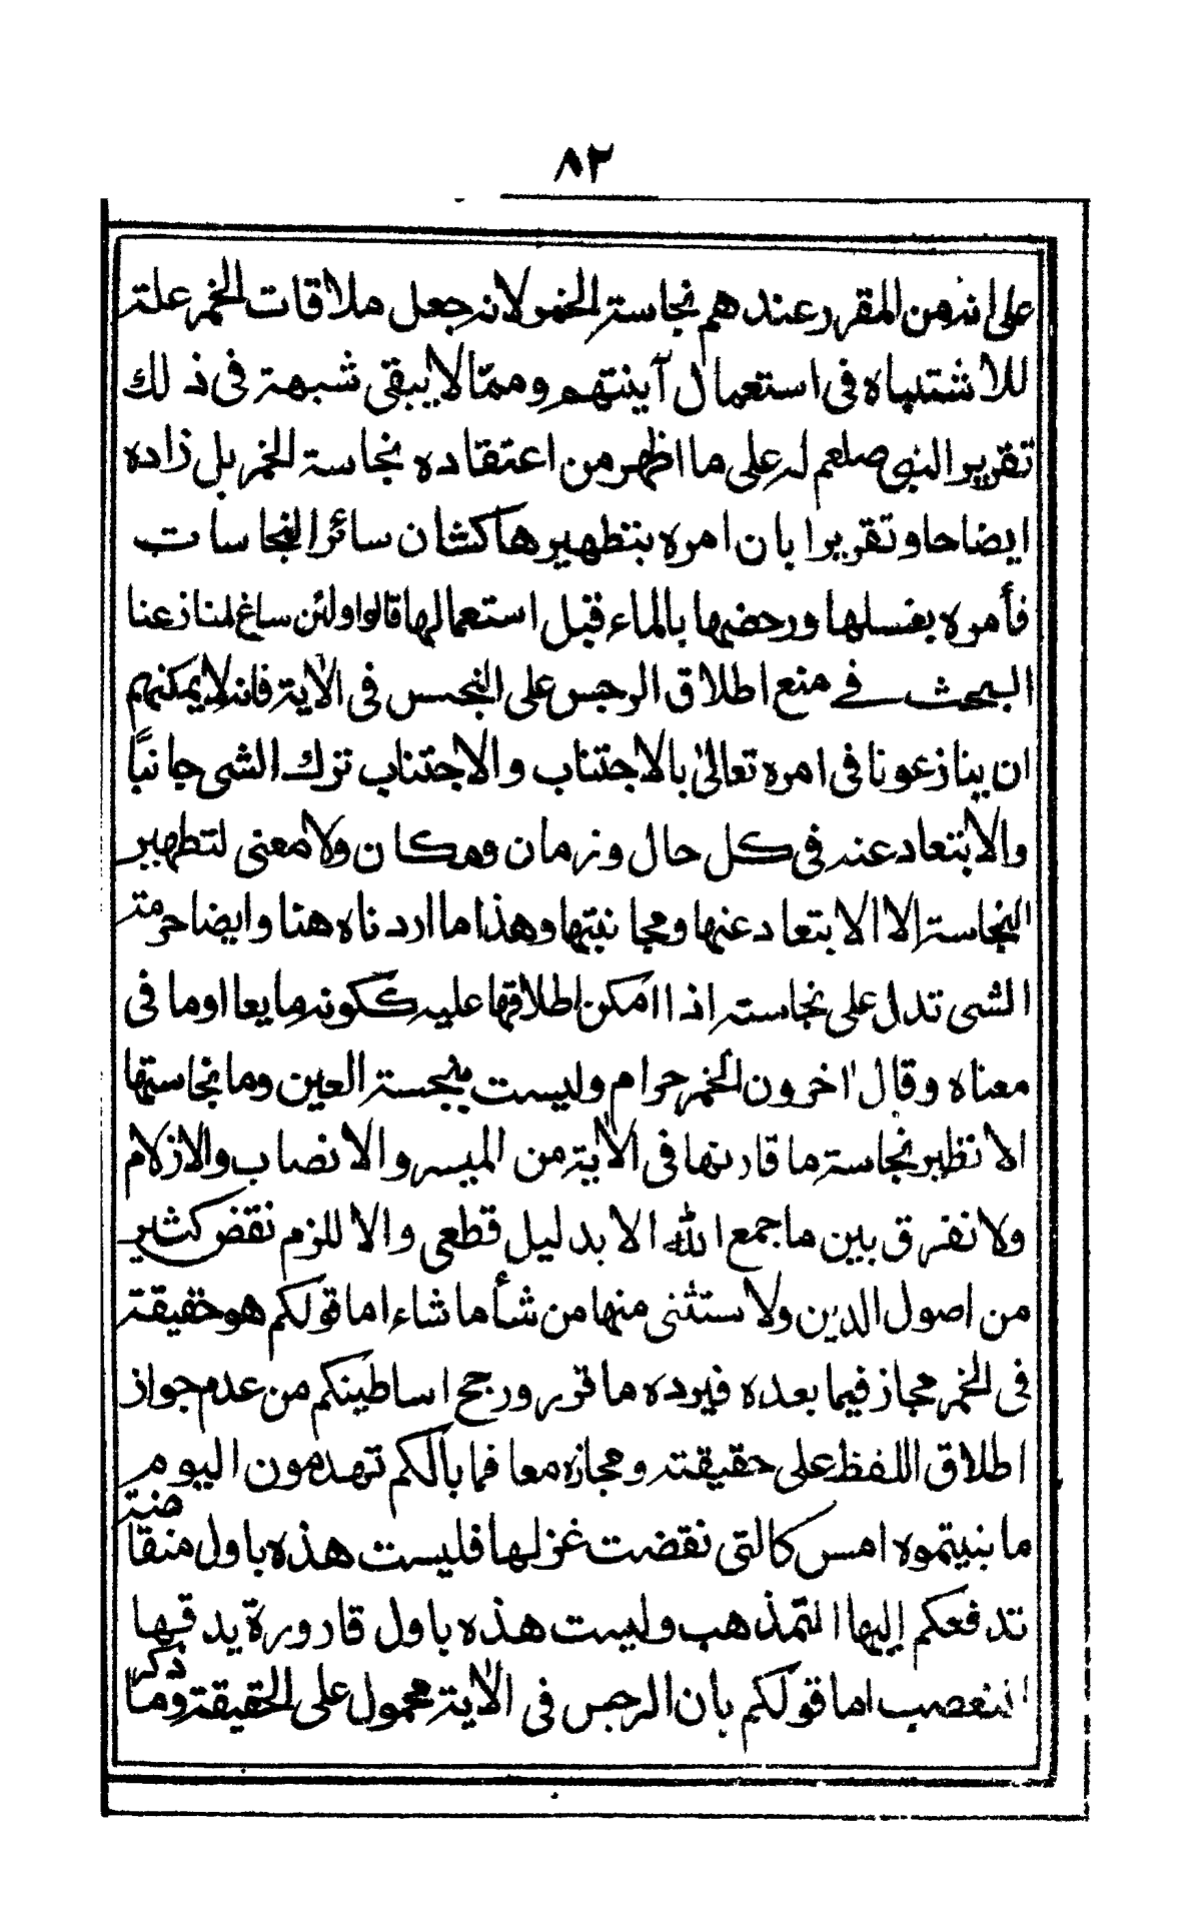 ٨٣
على انه من المقرر عندهم نجاسة الخمر لانه جعل ملاقات الخمر علة
للاشتباه فى استعمال آينتهم ومما لا يبقى شبهة فى ذلك
تقرير النبى صلعم له على ما اظهر من اعتقاده نجاسة الخمر بل زاده
ايضاحا وتقريرا بان امره بتطهيرها كشان سائر النجاسات
فأمره بغسلها ورحضها بالماء قبل استعمالها قالوا ولئن ساغ لمنازعنا
البحث فے منع اطلاق الرجس على النجس فى الآية فانه لا يمكنهم
ان ينازعونا فى امره تعالىٰ بالاجتناب والاجتناب ترك الشى جانبًا
والابتعاد عنه فى كل حال وزمان ومكان ولا معنى لتطهير
النجاسة الا الابتعاد عنها ومجانبتها وهذا ما اردناه هنا وايضا حرمة
الشى تدل على نجاسته اذا امكن اطلاقها عليه ككونه مايعا اوما فى
معناه وقال آخرون الخمر حرام وليست بنجسة العين وما نجاستها
الا نظير نجاسة ما قارنها فى الآية من الميسر والانصاب والازلام
ولا نفرق بين ما جمع الله الا بدليل قطعى والا للزم نقض كثير
من اصول الدين ولا ستثنى منها من شأ ما شاء اما قولكم هو حقيقة
فى الخمر مجاز فيما بعده فيرده ما قرر ورجح اساطينكم من عدم جواز
اطلاق اللفظ على حقيقته ومجازه معا فما بالكم تهدمون اليوم
ما بنيتموه امس كالتى نقضت غزلها فليست هذه باول مناقضة
تدفعكم إليها التمذهب وليست هذه باول قارورة يدقها
التعصب اما قولكم بان الرجس فى الآية محمول على الحقيقة وما ذكر